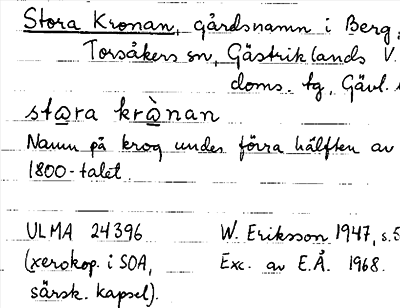 Stora Kronan, gårdsnamn i Berg,
Torsåkers sn, Gästriklands V.
doms. tg, Gävl.
stara krà̱nan
Namn på krog under förra hälften av
1800-talet
ULMA 24396
(xerokop. i SOA,
särsk. kapsel).
W. Eriksson 1947, s.5
Exc. av E.Å. 1968.